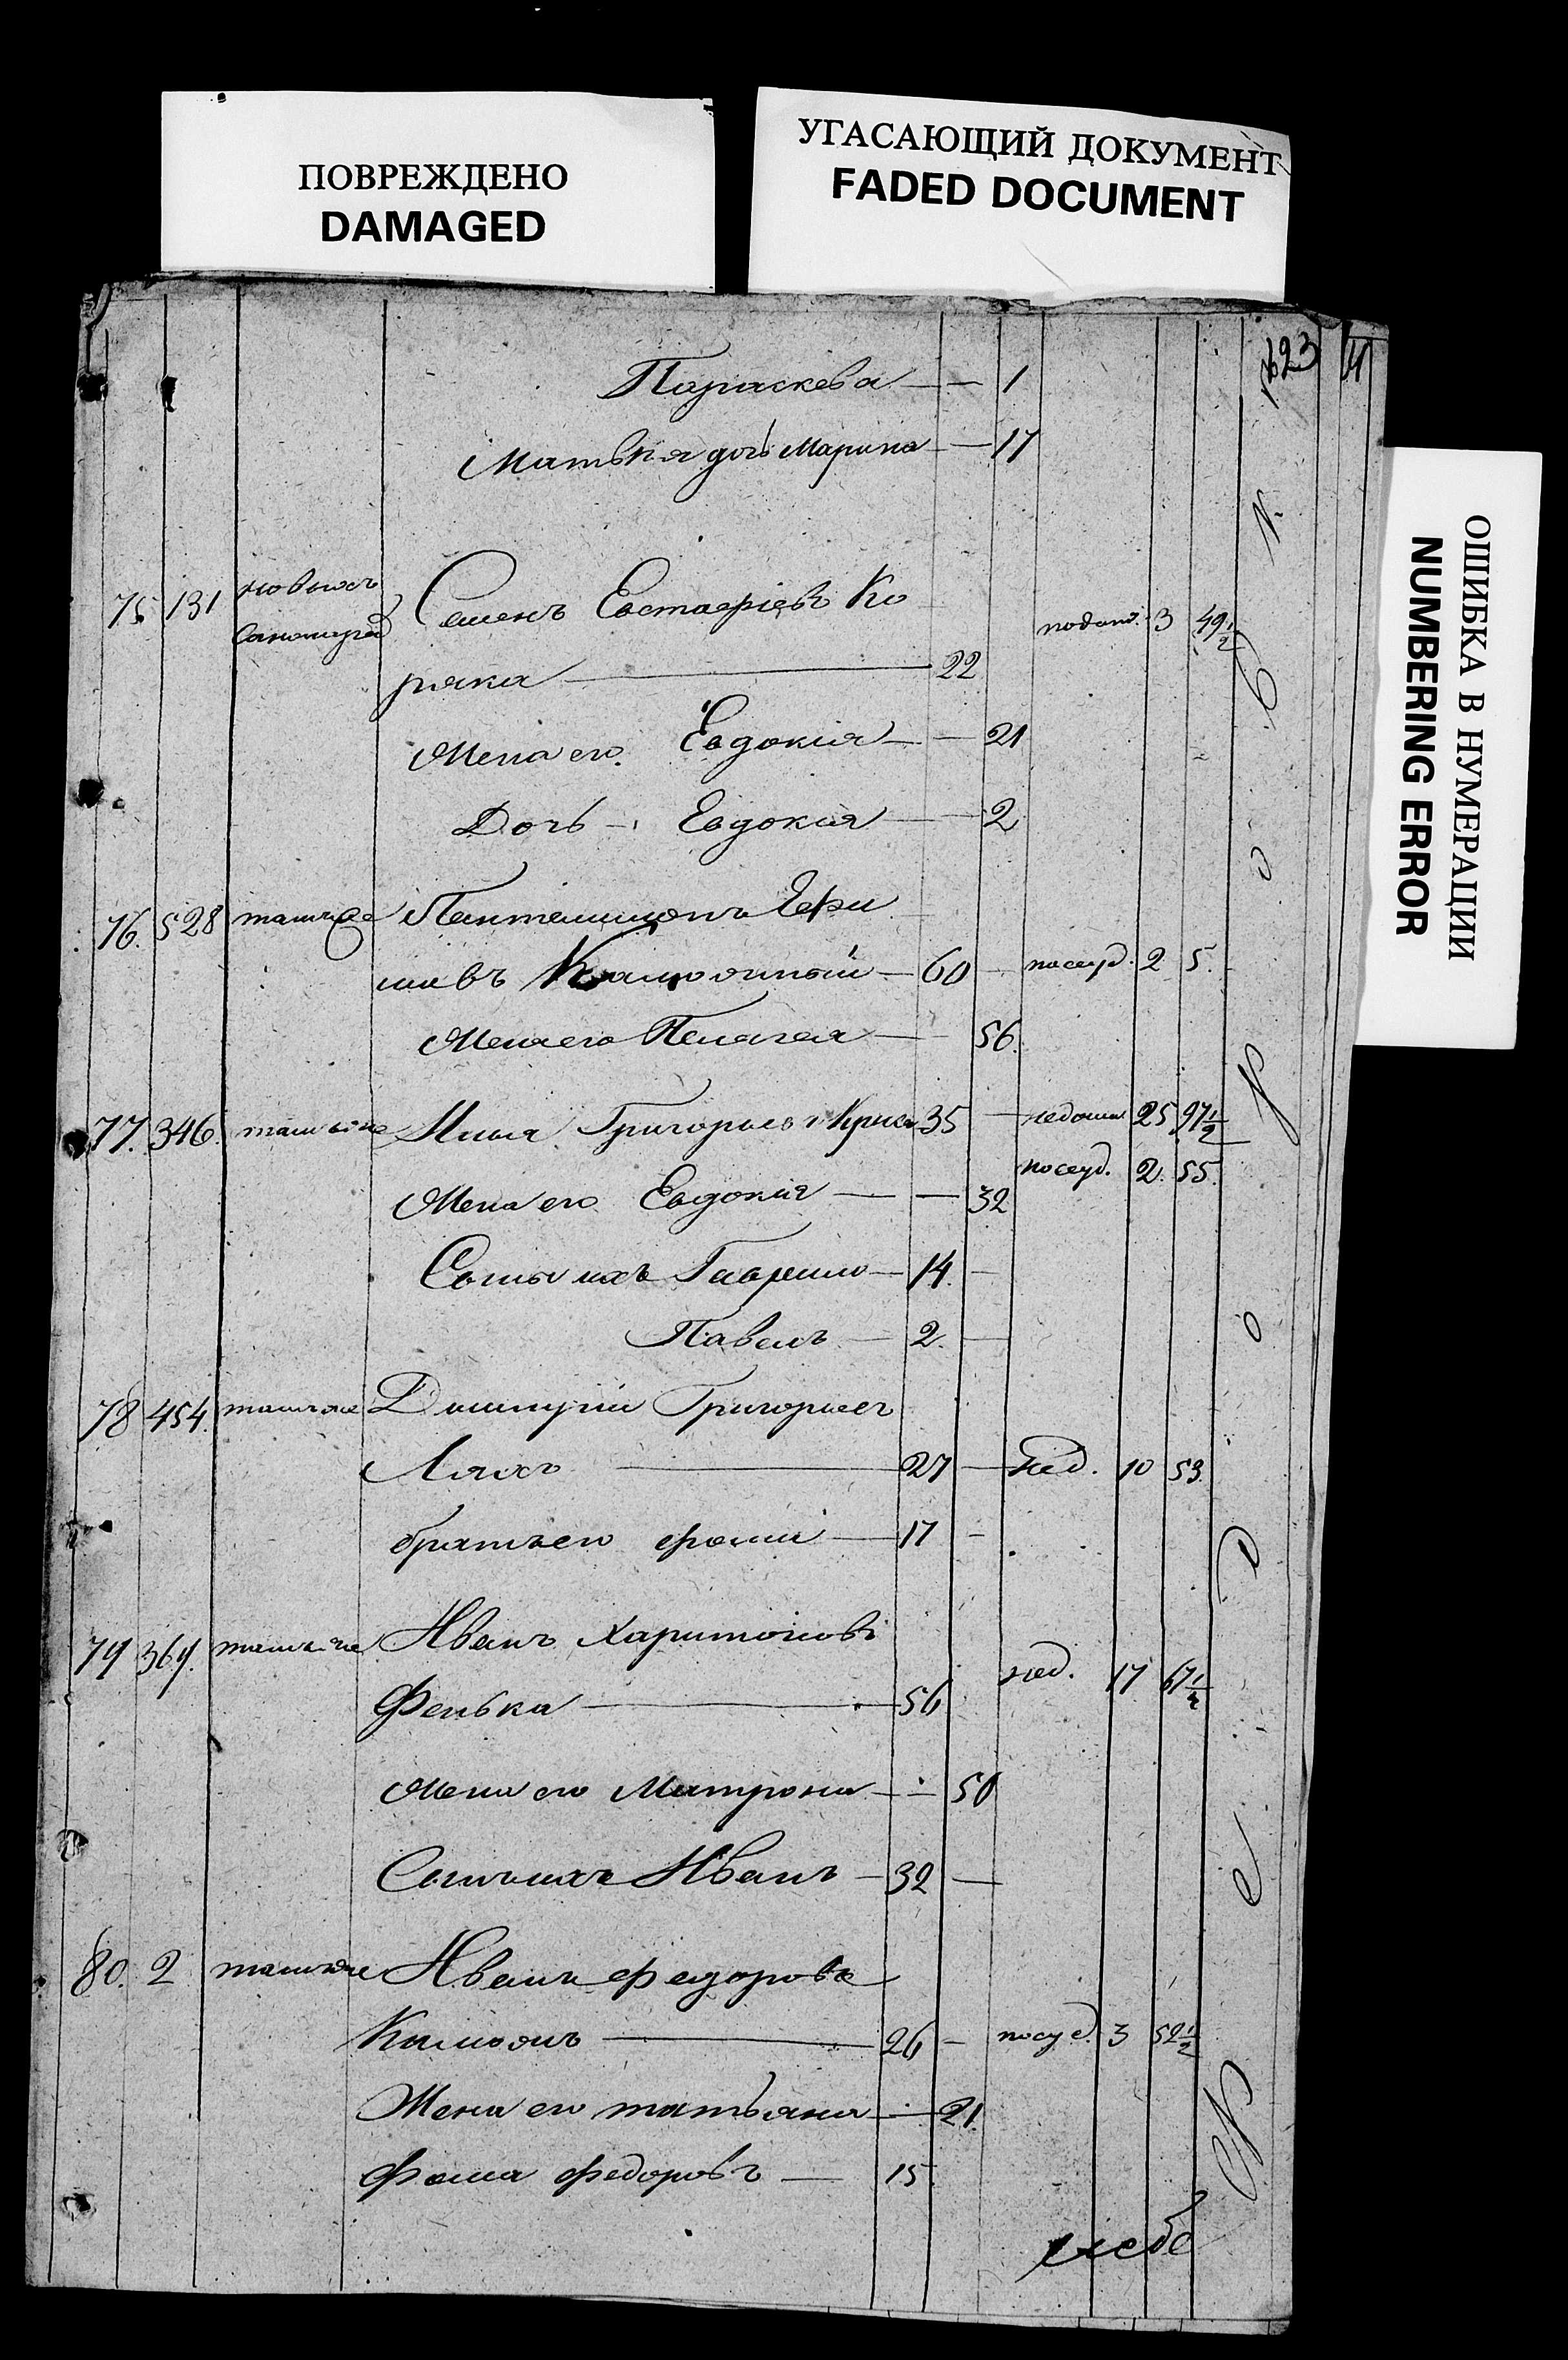 ПОВРЕЖДЕНО
DAMAGED
УГАСАЮЩИЙ ДОКУМЕНТ
FADED DOCUMENT
ОШИБКА В НУМЕРАЦИИ
NUMBERING ERROR
Параскева — — 1
Матвѣя дочь Марина — 17
75 131 Семенъ Евстафіевъ Ко
ряка — 22 3 49½
Жена его Евдокія — — 21
Дочь — Евдокія — — 2
76. 528 тамъже Пантелимонъ
60 — посуд. 2 5.
Жена его Пелагея — 56.
77. 346. тамъже Илья Григорьев 35 — недоим 25 97½
посуд. 2. 55.
Жена его Евдокія — — 32
Сыны ихъ Гаврило — 14. —
Павелъ — 2. —
78 454. тамъже Дмитрій Григорьев
Ляхъ — 27 — нед. 10 53.
братъ его — 17 —
79 369. тамъже Иванъ Харитоновъ
Фенька — 56 нед. 17 67½
Жена его Матрона — — 50
Сынъ ихъ Иванъ — 32 —
80. 2 тамъже Иванъ Федоровъ
26 — посуд. 3 52½
Жена его Татьяна — 21.
Фома Федоровъ — 15.